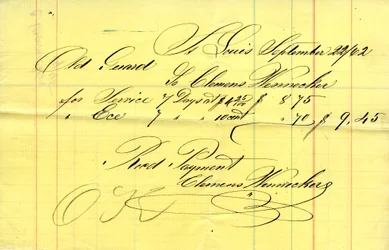 St Louis September 22/62
Old Guard
To Clemens Wennecker
for Service 7 Days at $1.25 $ 8 75
" Ece 7 " " 10 cent " 70 $ 9.45
Recd Payment
Clemens Wennecker
OK